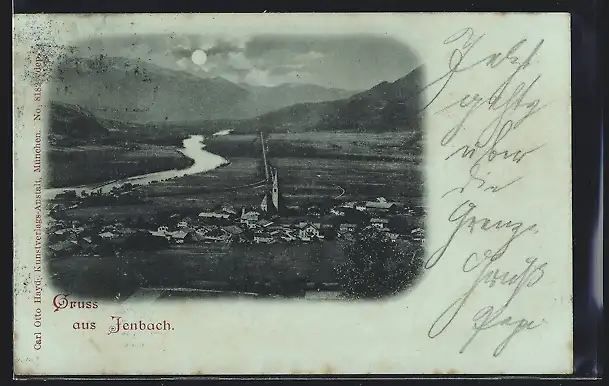 Carl Otto Hayd, Kunstverlags-Anstalt, München. No. 818
Gruss
aus Jenbach.
Jetzt
geht's
über
die
Grenze
Gruß